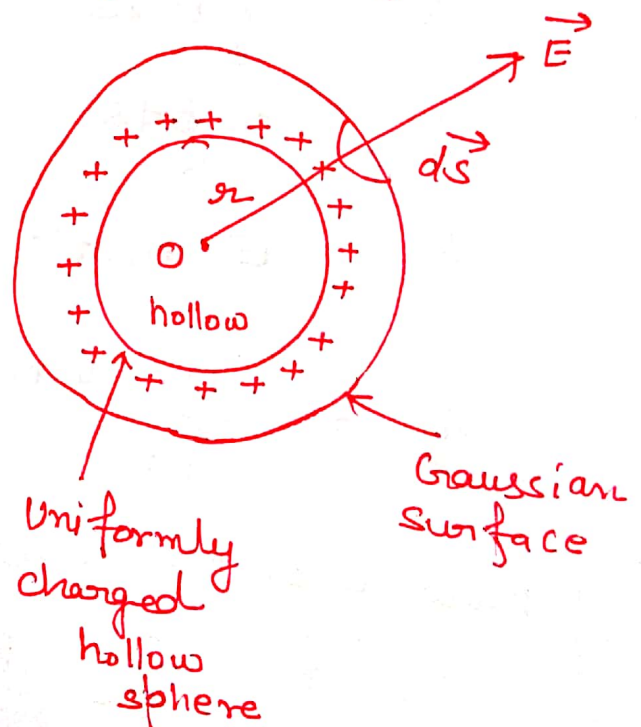 E
dS
r
O
hollow
Gaussian
surface
Uniformly
charged
hollow
sphere